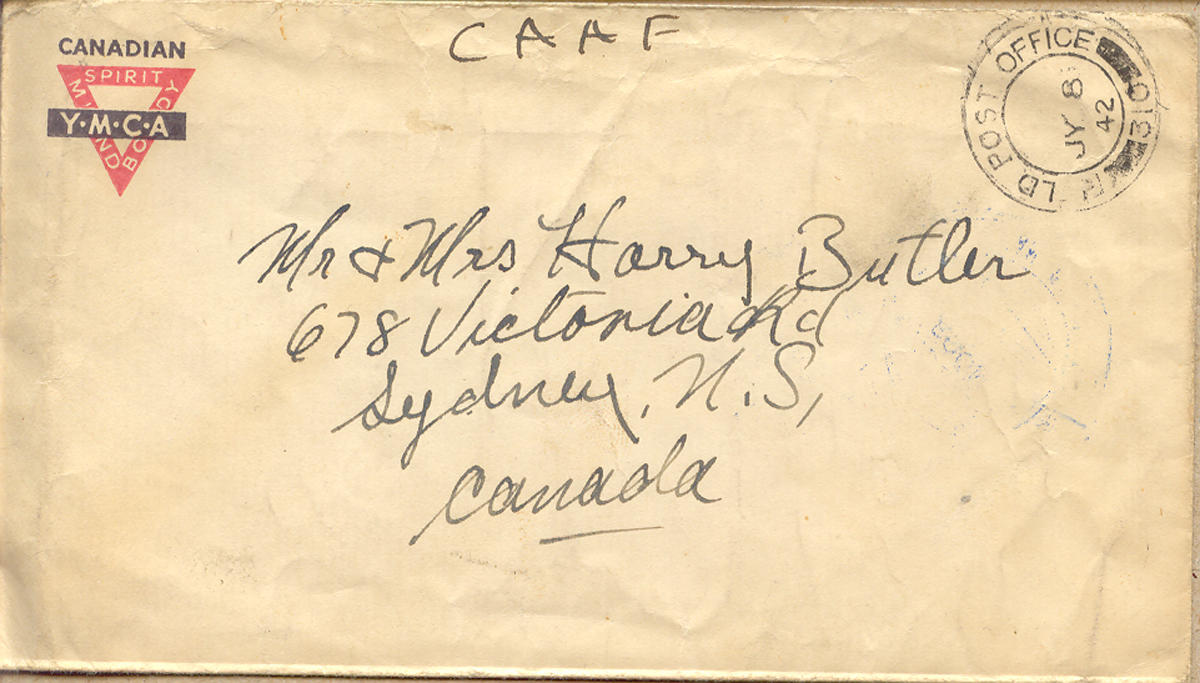 CAAF
CANADIAN
SPIRIT
MIND
BODY
Y·M·C·A
LD POST OFFICE
310
JY 8
42
Mr & Mrs Harry Butler
678 Victoria Rd
Sydney, N.S,
Canada